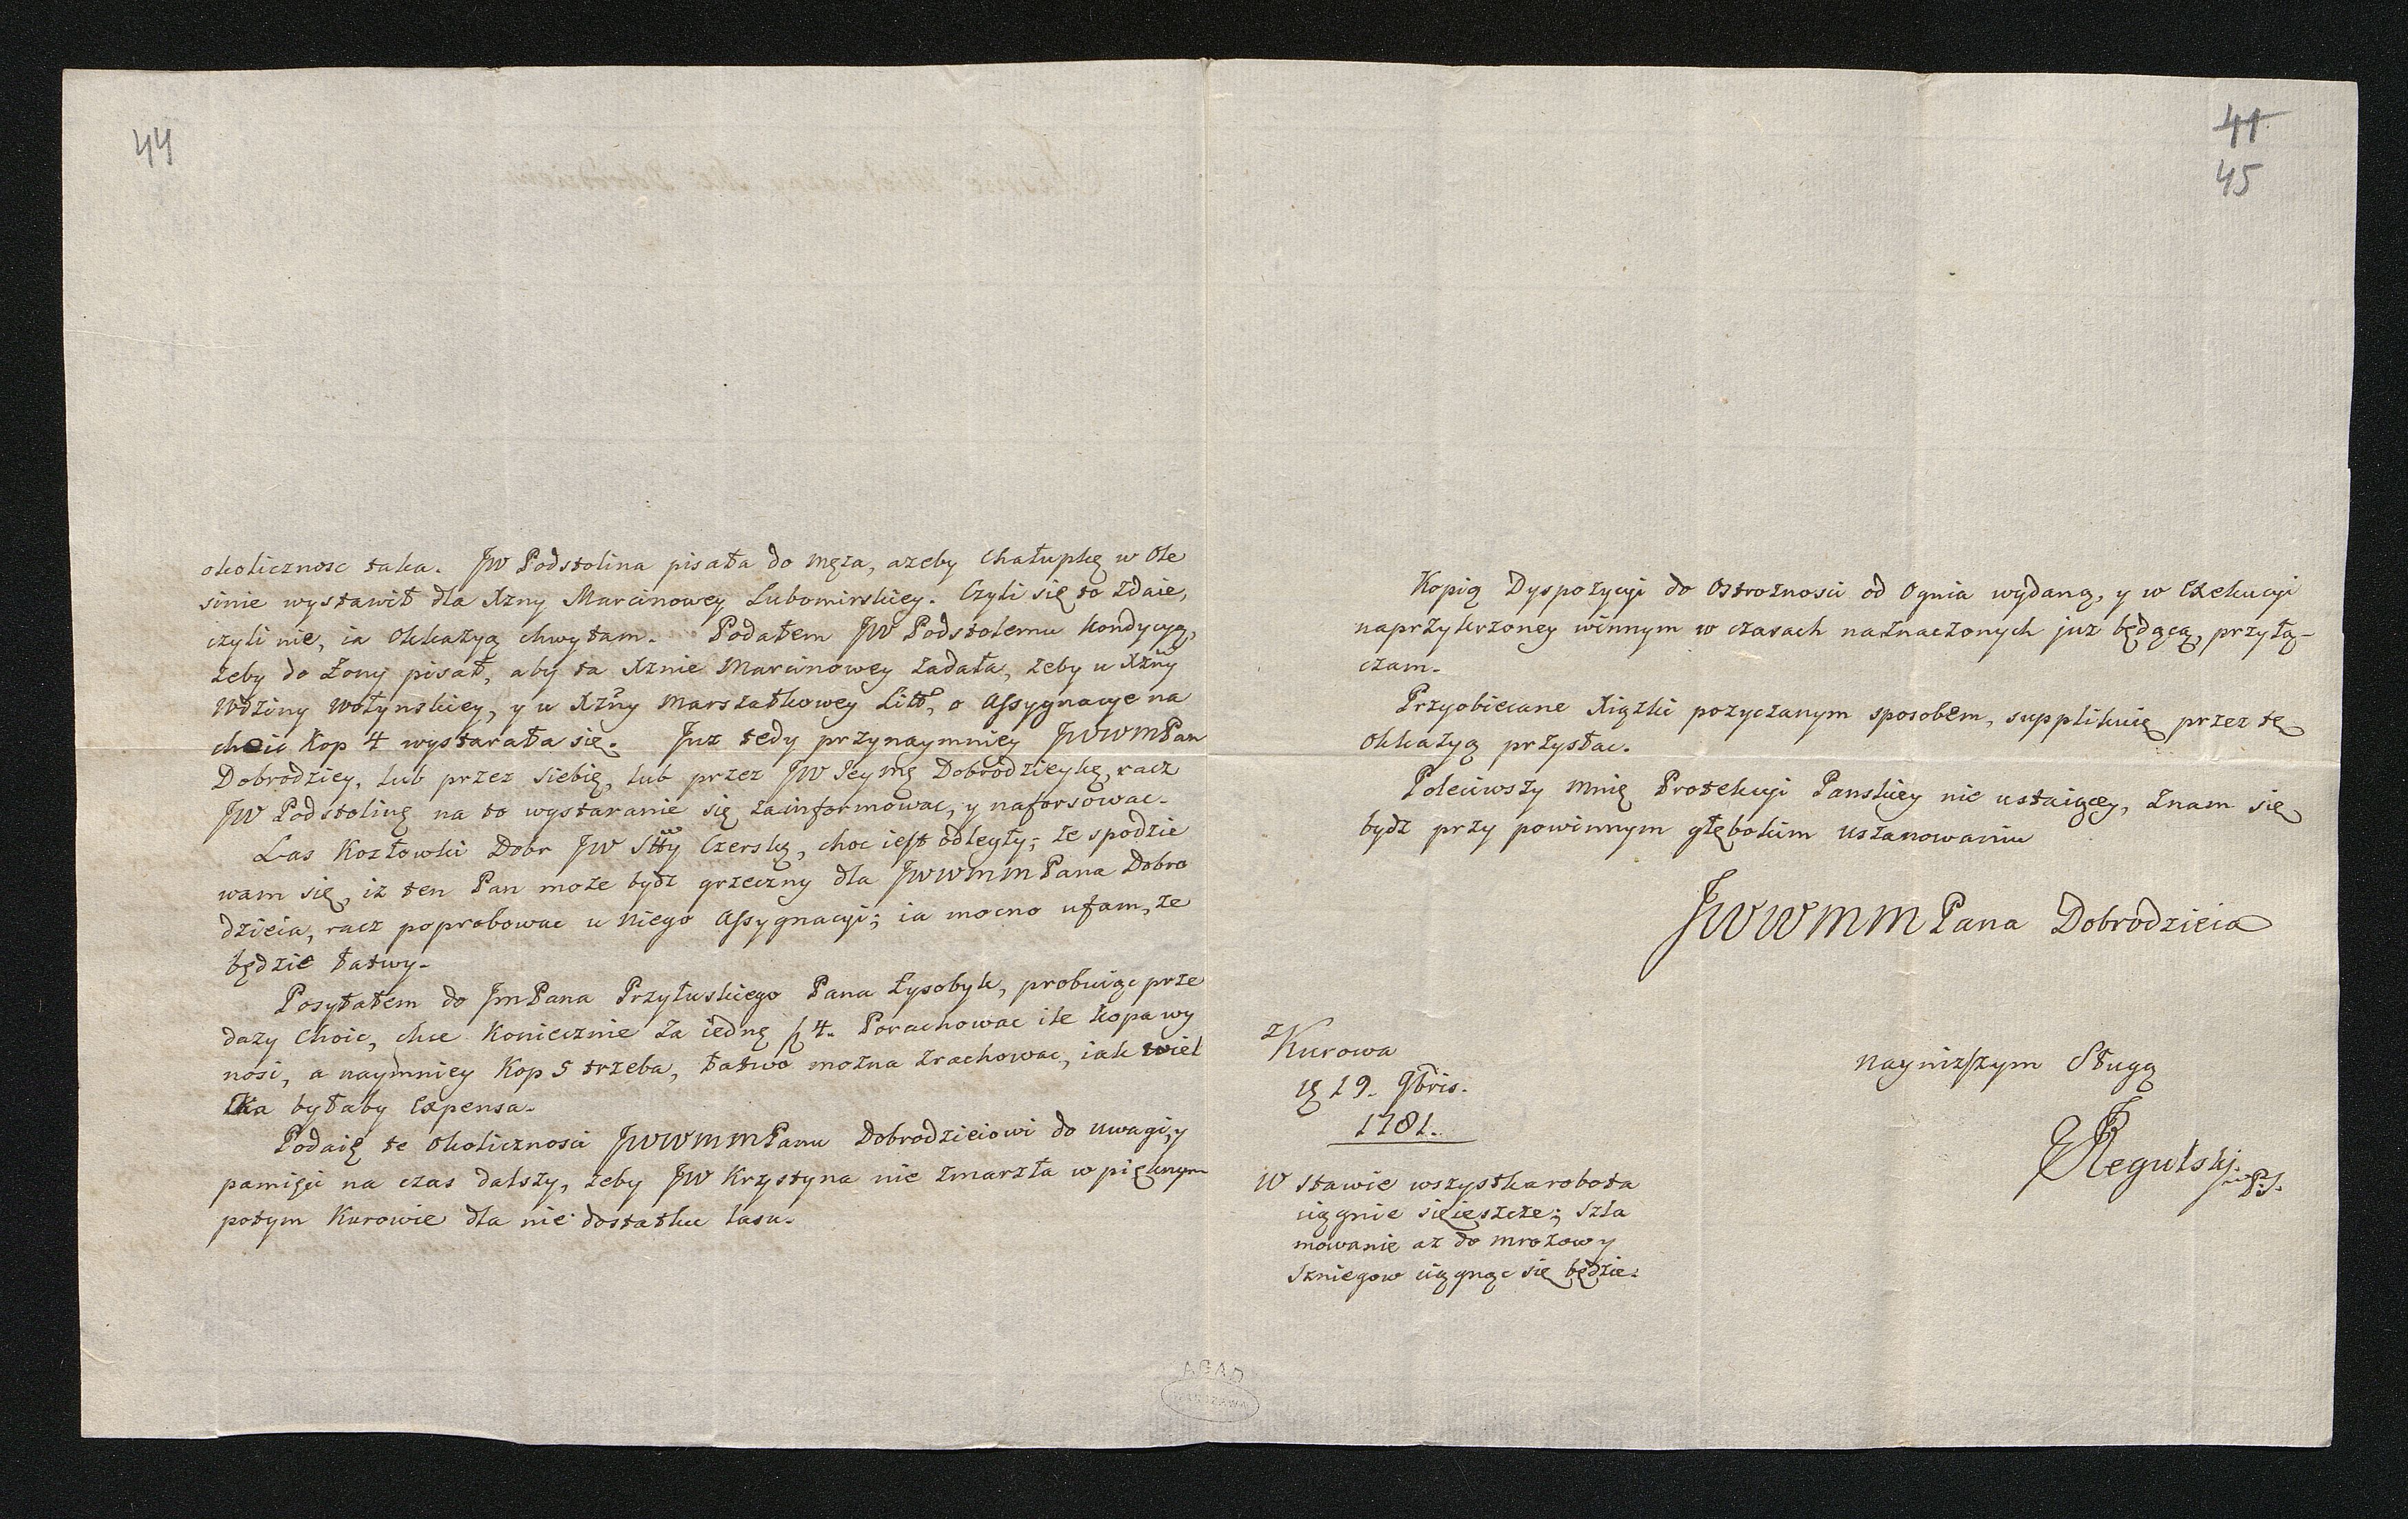 44
okolicznosc taka. JW Podstolina pisała do męża, azeby Chałupkę w Ole
sinie wystawił dla Xzny Marcinowey Lubomirskiey. Czyli się to zdaie,
czyli nie, ia Okkazyą chwytam. Podałem JW Podstolemu Kondycyą,
żeby do Zony pisał, aby ta Xznie Marcinowey zadała, zeby u Xżny
Wdziny Wołynskiey, y u Xżny Marszałkowey Litt, o Assygnacye na
choic Kop 4 wystarała się. Juz tedy przynaymniey JWWMPan
Dobrodziey, lub przez siebię, lub przez JW Jeymę Dobrodzieykę, racz
JW Podstolinę na to wystaranie się zainformowac, y naforsowac.
Las Kozłowki Dobr JW Stty Czerskę, choc iest odległy; ze spodzie
wam się, iz ten Pan może bydz grzeczny dla JWWMMPana Dobro
dzieia, racz poprobowac u Niego Assygnacyi; ia mocno ufam, ze
będzie łatwy.
Posyłałem do JmPana Przyłuskiego Pana Łysobyk, probuiąc prze
dazy Choic, chce Koniecznie za iednę # 4. Porachowac ile kopa wy
nosi, a naymniey Kop 5 trzeba, łatwo można zrachowac, iak wiel
ka byłaby Expensa.
Podaię te Okolicznosci JWWMMPanu Dobrodzieiowi do uwagi, y
pamięci na czas dalszy, żeby JW Krzystyna nie zmarzła w pięknym
potym Kurowie dla nie dostatku lasu.
41
45
Kopią Dyspozycyi do Ostrożnosci od Ognia wydaną, y w Exekucyi
naprzykrzoney winnym w czasach naznaczonych juz będącą, przyłą-
czam.
Przyobiecane Xiązki pozyczanym sposobem, supplikuię przez tę
Okkazyą przysłac.
Poleciwszy mnię Protekcyi Panskiey nie ustaiącey, znam się
bydz przy powinnym głębokim uszanowaniu
JWWMMPana Dobrodzieia
z Kurowa
19. 9bris.
1781.
nayniższym Sługą
Regulski
W stawie wszystka robota
ciągnie się ieszcze; szla
mowanie az do mrozow y
szniegow ciągnąc się będzie.
AGAD
WARSZAWA